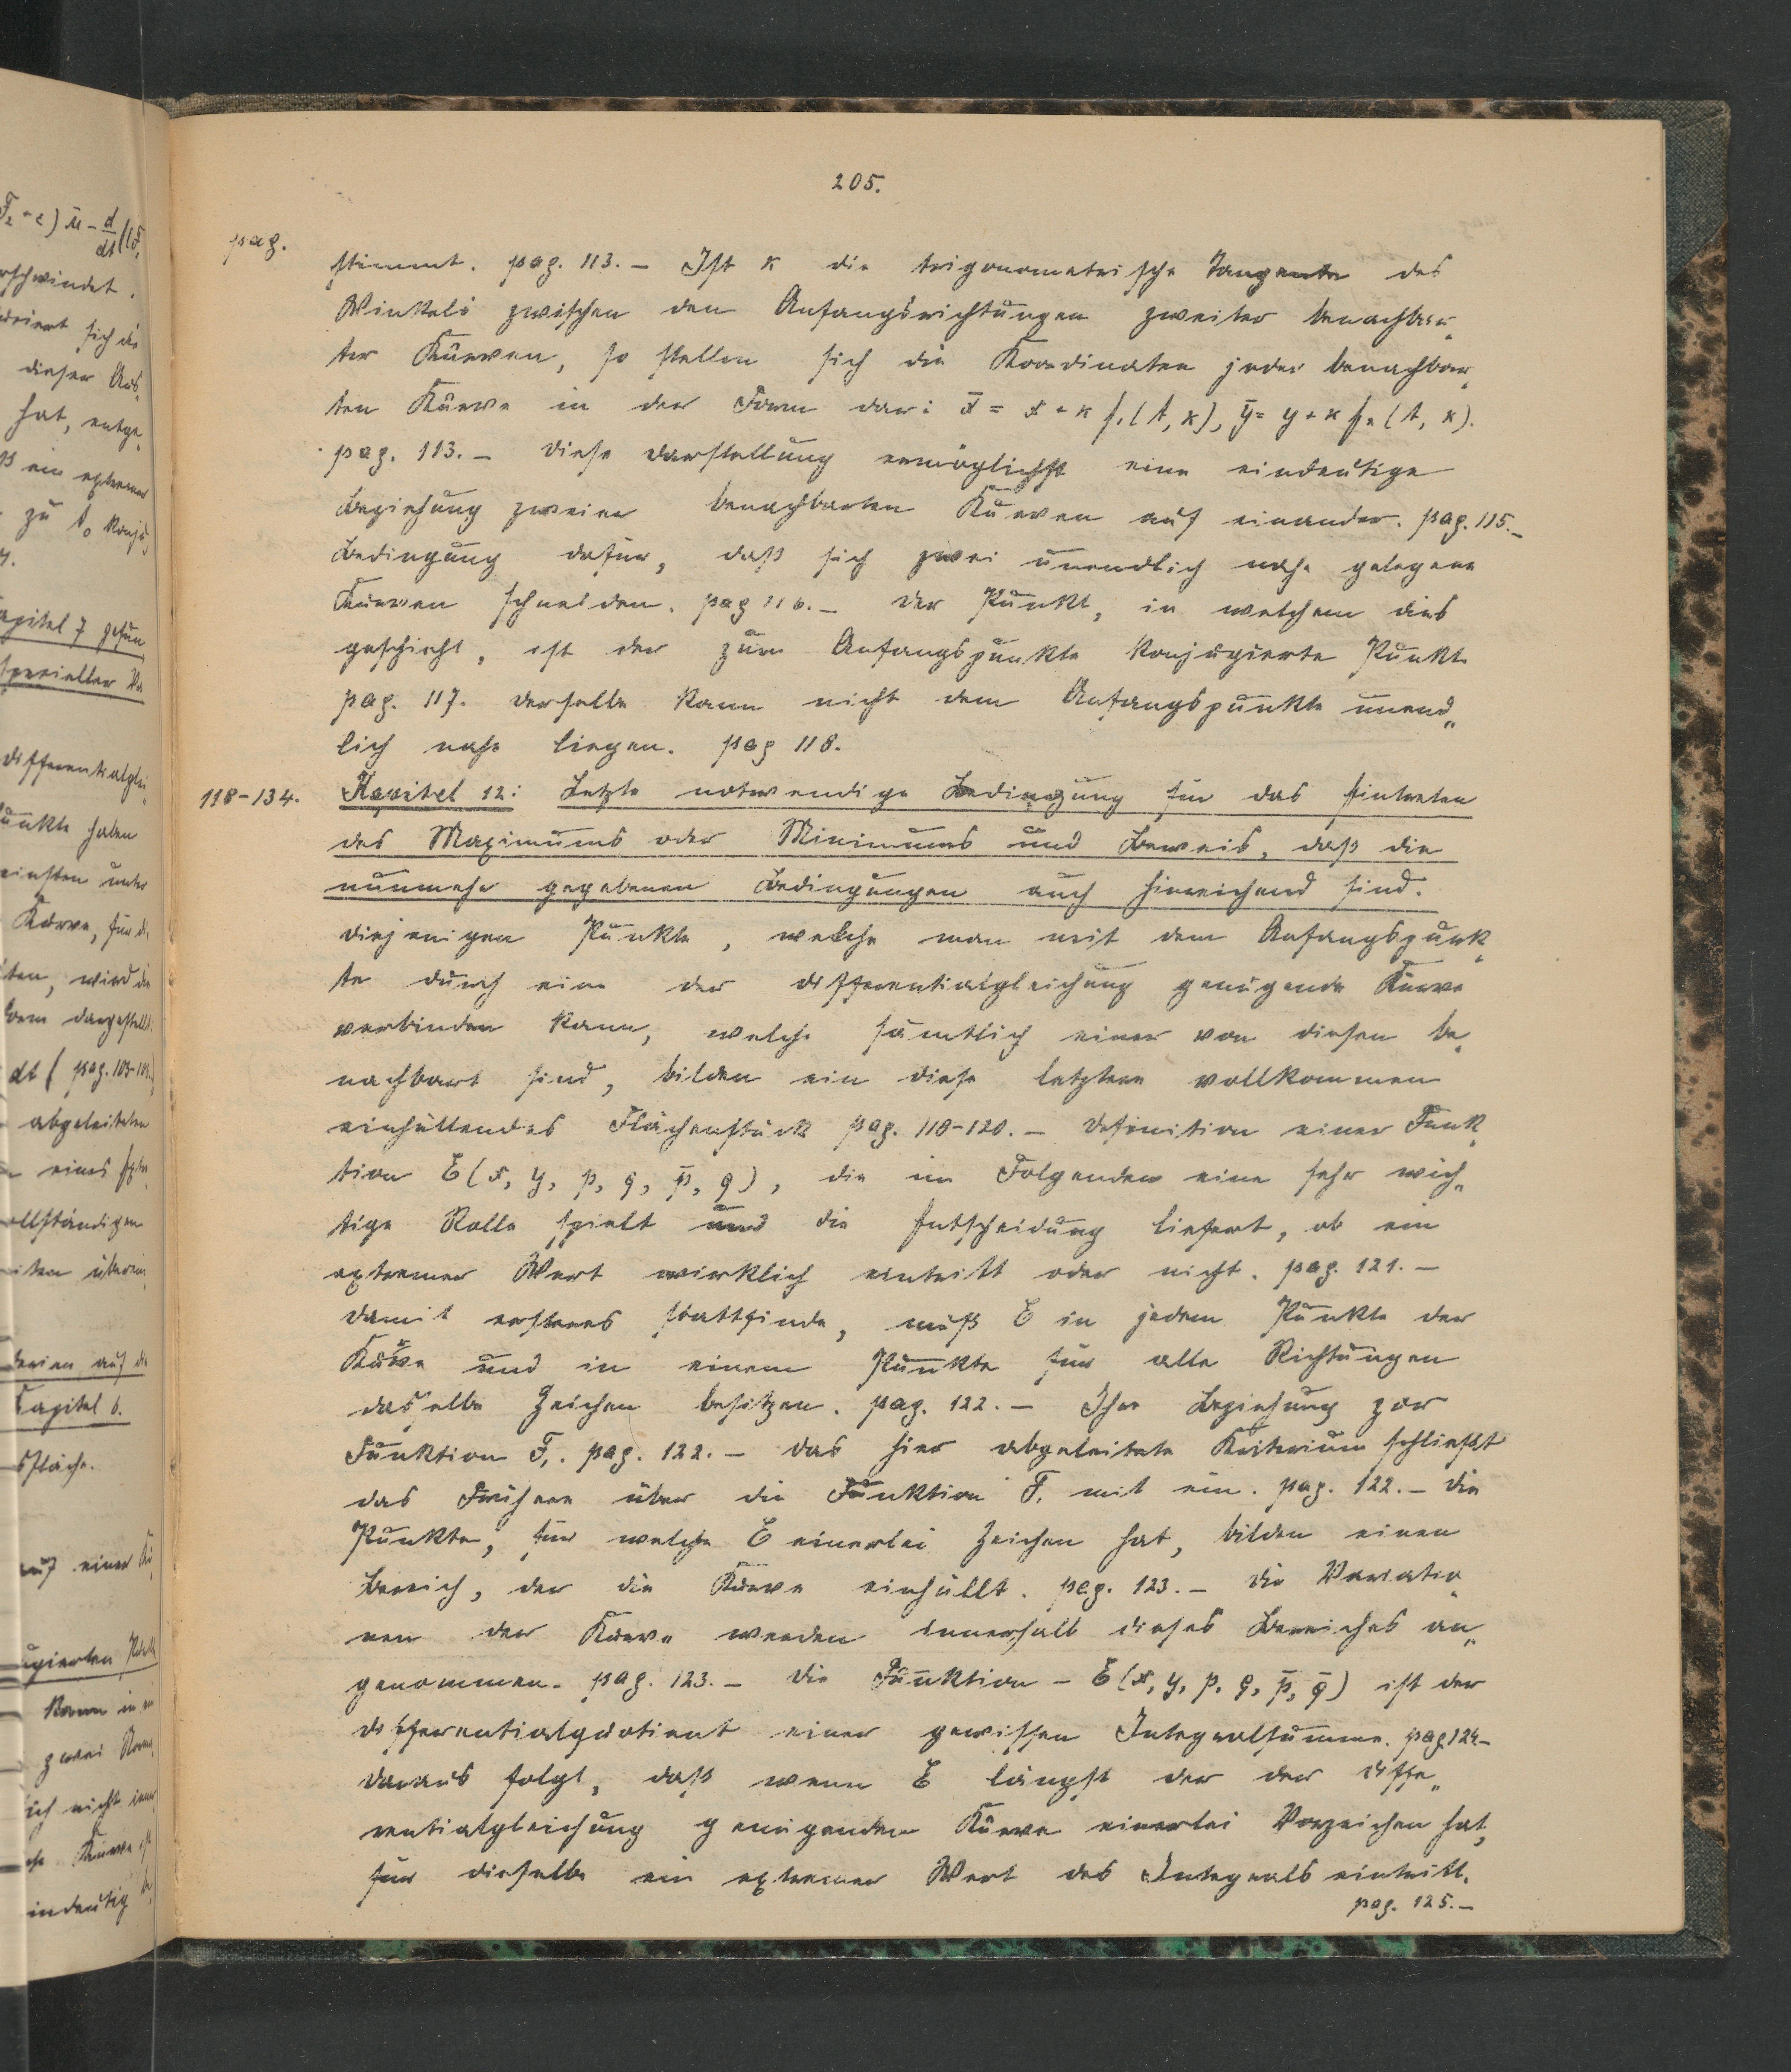 205.
pag.
stimmt. pag. 113. – Ist κ die trigonometrische Tangente des
Winkels zwischen den Anfangsrichtungen zweiter benachbar„
ter Kurven, so stellen sich die Koordinaten jeder benachbar„
ten Kurve in der Form dar: x̄ = x + κ f₁(t, κ), ȳ = y + κ f₂(t, κ).
pag. 113. – Diese Darstellung ermöglichst eine eindeutige
Beziehung zweier benachbarten Kurven auf einander. pag. 115. –
Bedingung dafür, daß sich zwei unendlich nahe gelegene
Kurven schneiden. pag 116. – Der Punkt, in welchem dies
geschieht, ist der zum Anfangspunkte konjugierte Punkt.
pag. 117. Derselbe kann nicht dem Anfangspunkte unend„
lich nahe liegen. pag 118.
118-134. Kapitel 12: Letzte notwendige Bedingung für das Eintreten
des Maximums oder Minimums und Beweis, daß die
nunmehr gegebenen Bedingungen auch hinreichend sind.
Diejenigen Punkte, welche man mit dem Anfangspunk„
te durch eine der Differentialgleichung genügende Kurve
verbinden kann, welche sämtlich einer von diesen be„
nachbart sind, bilden ein diese letztere vollkommen
einhüllendes Flächenstück pag. 118-120. – Definition einer Funk„
tion E(x, y, p, q, p̄, q̄), die im Folgenden eine sehr wich„
tige Rolle spielt und die Entscheidung liefert, ob ein
extremer Wert wirklich eintritt oder nicht. pag. 121. –
Damit ersteres stattfinde, muß E in jedem Punkte der
Kurve und in einem Punkte für alle Richtungen
dasselbe Zeichen besitzen. pag. 122. – Ihre Beziehung zur
Funktion F₁. pag. 122. – Das hier abgeleitete Kriterium schließt
das Frühere über die Funktion F₁ mit ein. pag. 122. – Die
Punkte, für welche E einerlei Zeichen hat, bilden einen
Bereich, der die Kurve einhüllt. pag. 123. – Die Variatio„
nen der Kurve werden innerhalb dieses Bereiches an„
genommen. pag. 123. – Die Funktion – E(x, y, p, q, p̄, q̄) ist der
Differentialquotient einer gewissen Integralsumme. pag 124 –
Daraus folgt, daß wenn E längst der der Diffe„
rentialgleichung genügenden Kurve einerlei Vorzeichen hat,
für dieselbe ein extremer Wert des Integrals eintritt.
pag. 125. –